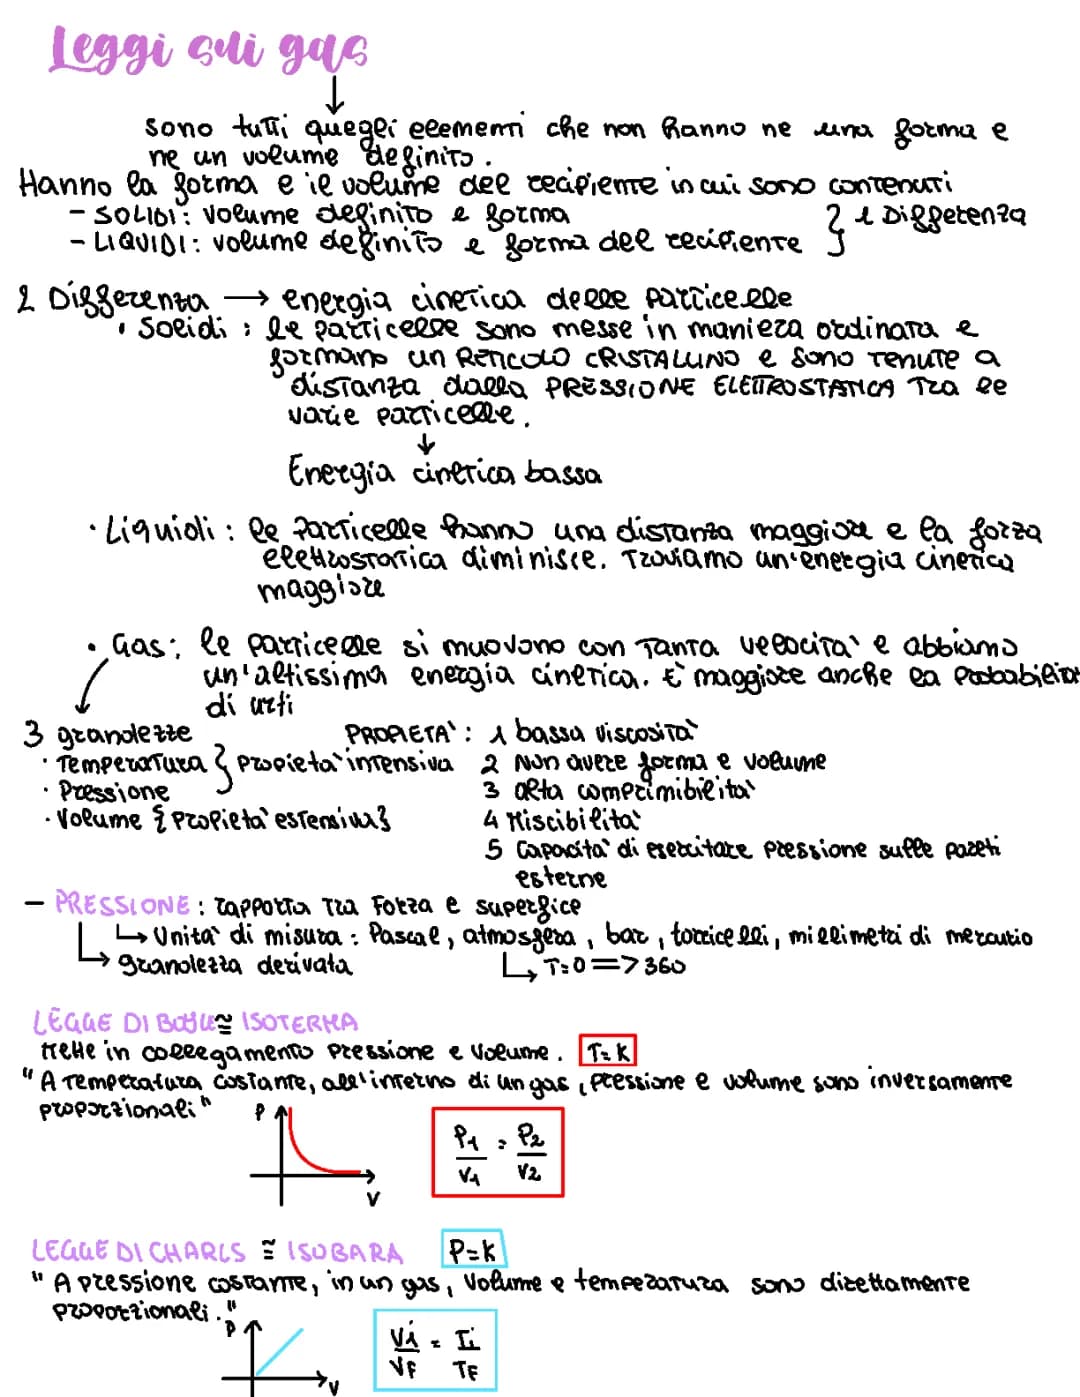 Leggi sui gas
sono tutti quegli elementi che non hanno ne una forma e
ne un volume definito.
Hanno la forma e il volume del recipiente in cui sono contenuti
- SOLIDI: volume definito e forma
- LIQUIDI: volume definito e forma del recipiente
} 1 Differenza
2 Differenza → energia cinetica delle particelle
• Solidi: le particelle sono messe in maniera ordinata e
formano un RETICOLO CRISTALLINO e sono tenute a
distanza dalla PRESSIONE ELETTROSTATICA tra le
varie particelle.
↓
Energia cinetica bassa
• Liquidi: le particelle hanno una distanza maggiore e la forza
elettrostatica diminisce. Troviamo un'energia cinetica
maggiore
• Gas: le particelle si muovono con tanta velocità e abbiamo
un'altissima energia cinetica. E' maggiore anche la probabilità
di urti
3 grandezze
• Temperatura } propietà intensiva
• Pressione
• Volume { propietà estensiva }
PROPIETA': 1 bassa viscosità
2 Non avere forma e volume
3 alta comprimibilità
4 Miscibilità
5 Capacità di esercitare pressione sulle pareti
esterne
- PRESSIONE: rapporto tra Forza e superfice
↳ Unità di misura: Pascal, atmosfera, bar, torricelli, millimetri di mercurio
↳ grandezza derivata
↳ T=0 => 360
LEGGE DI BOYLE ≅ ISOTERMA
Mette in collegamento Pressione e Volume. T=K
"A temperatura costante, all'interno di un gas, pressione e volume sono inversamente
proporzionali"
P
V
P1/V1 = P2/V2
LEGGE DI CHARLS ≅ ISOBARA P=K
"A pressione costante, in un gas, volume e temperatura sono direttamente
proporzionali."
P
V
Vi/VF = Ti/TF